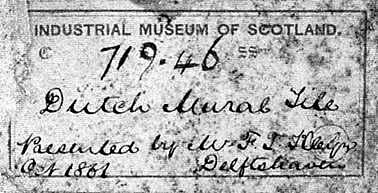 INDUSTRIAL MUSEUM OF SCOTLAND.
719.46
Dutch Mural Tile
Presented by Mr F. L.
Oct 1861 Delftshaven